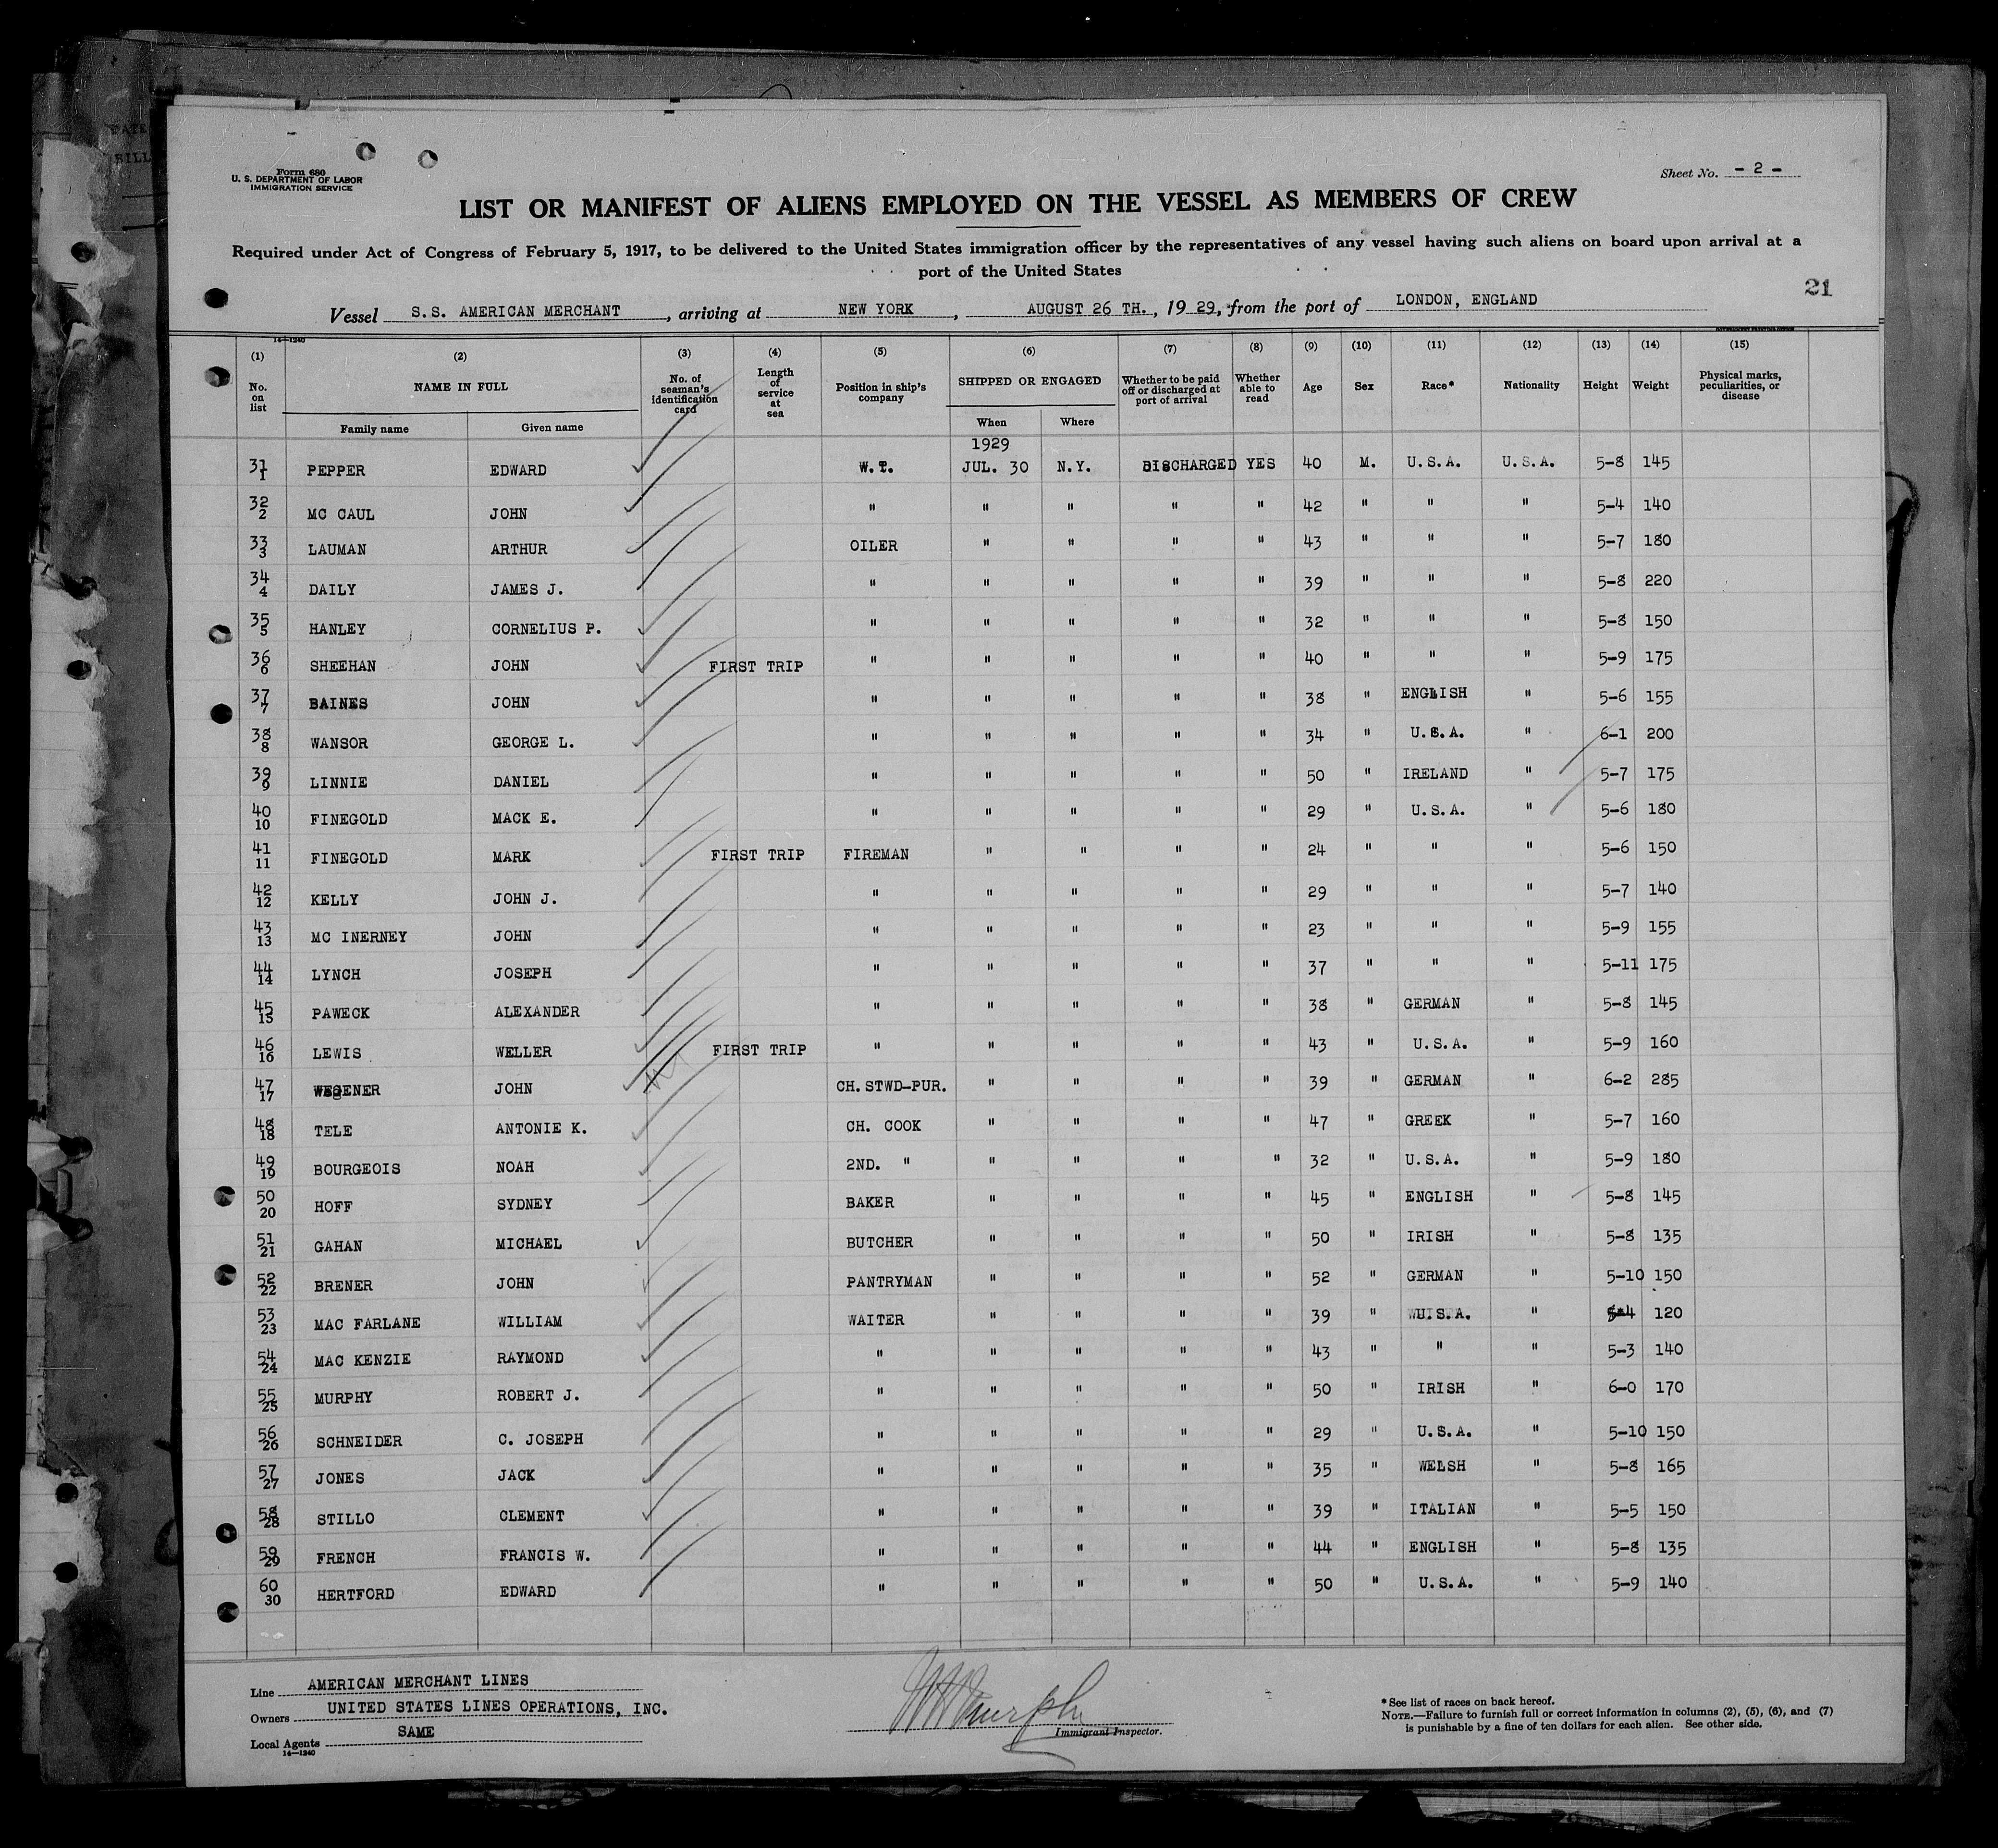 Form 680
U. S. DEPARTMENT OF LABOR
IMMIGRATION SERVICE
Sheet No. - 2 -
LIST OR MANIFEST OF ALIENS EMPLOYED ON THE VESSEL AS MEMBERS OF CREW
Required under Act of Congress of February 5, 1917, to be delivered to the United States immigration officer by the representatives of any vessel having such aliens on board upon arrival at a
port of the United States
21
Vessel S.S. AMERICAN MERCHANT, arriving at NEW YORK, AUGUST 26 TH., 1929, from the port of LONDON, ENGLAND
14—1240
(1) (2) (3) (4) (5) (6) (7) (8) (9) (10) (11) (12) (13) (14) (15)
No. on list NAME IN FULL Family name Given name No. of seaman's identification card Length of service at sea Position in ship's company SHIPPED OR ENGAGED When Where Whether to be paid off or discharged at port of arrival Whether able to read Age Sex Race* Nationality Height Weight Physical marks, peculiarities, or disease
1929
31 1 PEPPER EDWARD W.T. JUL. 30 N.Y. DISCHARGED YES 40 M. U.S.A. U.S.A. 5-8 145
32 2 MC CAUL JOHN " " " " " 42 " " " 5-4 140
33 3 LAUMAN ARTHUR OILER " " " " 43 " " " 5-7 180
34 4 DAILY JAMES J. " " " " " 39 " " " 5-8 220
35 5 HANLEY CORNELIUS P. " " " " " 32 " " " 5-8 150
36 6 SHEEHAN JOHN FIRST TRIP " " " " " 40 " " " 5-9 175
37 7 BAINES JOHN " " " " " 38 " ENGLISH " 5-6 155
38 8 WANSOR GEORGE L. " " " " " 34 " U.S.A. " 6-1 200
39 9 LINNIE DANIEL " " " " " 50 " IRELAND " 5-7 175
40 10 FINEGOLD MACK E. " " " " " 29 " U.S.A. " 5-6 180
41 11 FINEGOLD MARK FIRST TRIP FIREMAN " " " " 24 " " " 5-6 150
42 12 KELLY JOHN J. " " " " " 29 " " " 5-7 140
43 13 MC INERNEY JOHN " " " " " 23 " " " 5-9 155
44 14 LYNCH JOSEPH " " " " " 37 " " " 5-11 175
45 15 PAWECK ALEXANDER " " " " " 38 " GERMAN " 5-8 145
46 16 LEWIS WELLER FIRST TRIP " " " " " 43 " U.S.A. " 5-9 160
47 17 WEGENER JOHN CH. STWD-PUR. " " " " 39 " GERMAN " 6-2 285
48 18 TELE ANTONIE K. CH. COOK " " " " 47 " GREEK " 5-7 160
49 19 BOURGEOIS NOAH 2ND. " " " " " 32 " U.S.A. " 5-9 180
50 20 HOFF SYDNEY BAKER " " " " 45 " ENGLISH " 5-8 145
51 21 GAHAN MICHAEL BUTCHER " " " " 50 " IRISH " 5-8 135
52 22 BRENER JOHN PANTRYMAN " " " " 52 " GERMAN " 5-10 150
53 23 MAC FARLANE WILLIAM WAITER " " " " 39 " U.S.A. " 5-4 120
54 24 MAC KENZIE RAYMOND " " " " " 43 " " " 5-3 140
55 25 MURPHY ROBERT J. " " " " " 50 " IRISH " 6-0 170
56 26 SCHNEIDER C. JOSEPH " " " " " 29 " U.S.A. " 5-10 150
57 27 JONES JACK " " " " " 35 " WELSH " 5-8 165
58 28 STILLO CLEMENT " " " " " 39 " ITALIAN " 5-5 150
59 29 FRENCH FRANCIS W. " " " " " 44 " ENGLISH " 5-8 135
60 30 HERTFORD EDWARD " " " " " 50 " U.S.A. " 5-9 140
Line AMERICAN MERCHANT LINES
Owners UNITED STATES LINES OPERATIONS, INC.
Local Agents SAME
14—1240
Murphy
Immigrant Inspector.
*See list of races on back hereof.
NOTE.—Failure to furnish full or correct information in columns (2), (5), (6), and (7)
is punishable by a fine of ten dollars for each alien. See other side.